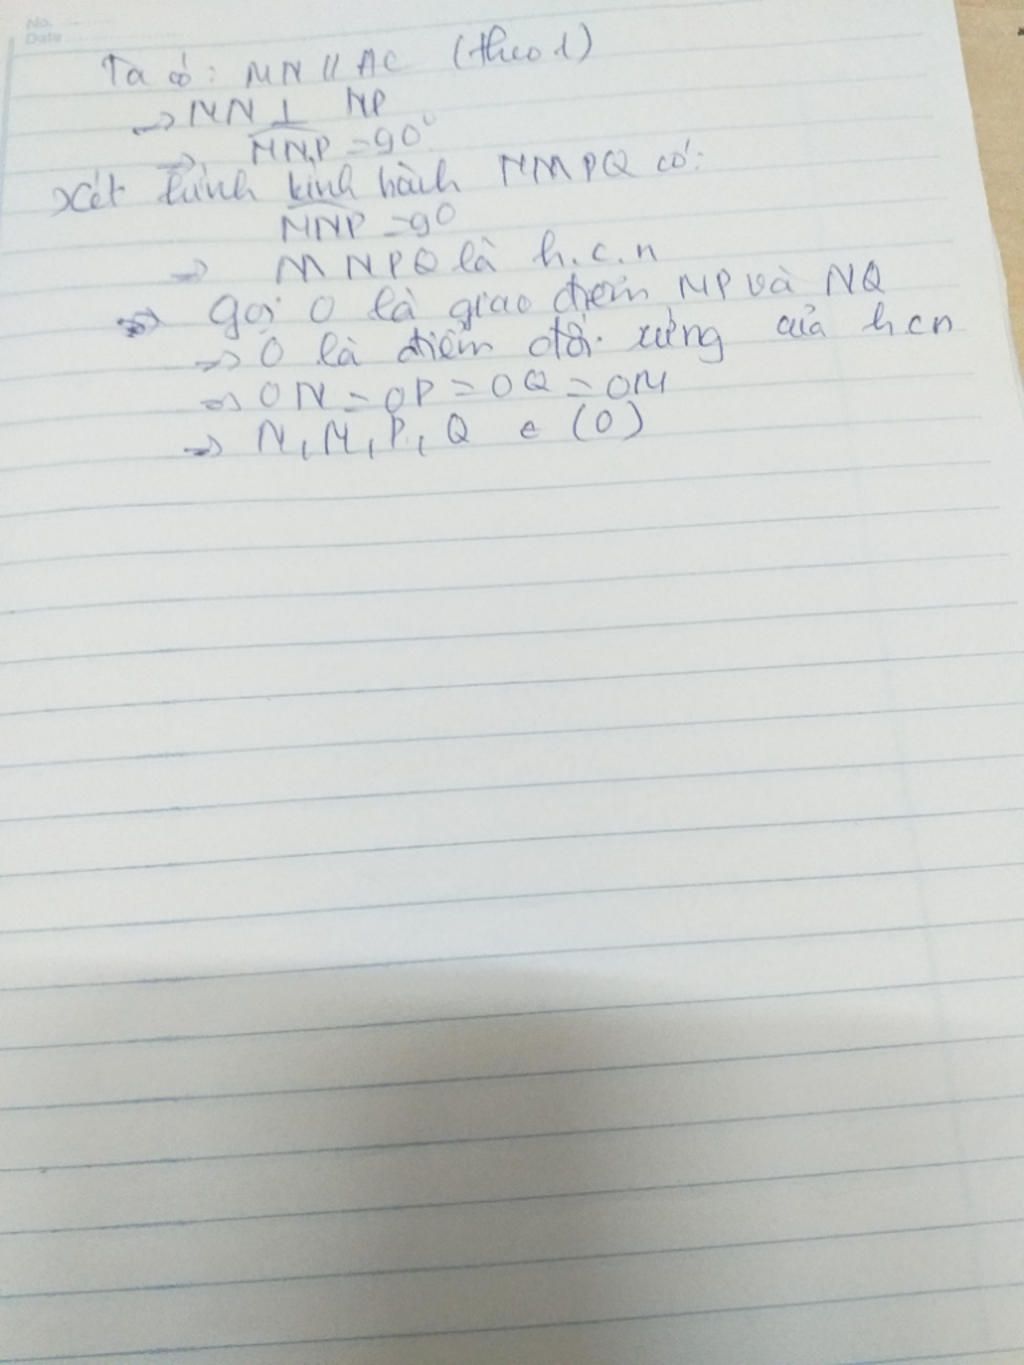 No.
Date
Ta có: MN // AC (theo 1)
=> MN ⊥ NP
=> MNP = 90°
Xét hình bình hành NMPQ có:
MNP = 90
=> MNPQ là h.c.n
=> Gọi O là giao điểm MP và NQ
=> O là điểm đối xứng của hcn
=> ON = OP = OQ = OM
=> N, M, P, Q ∈ (O)